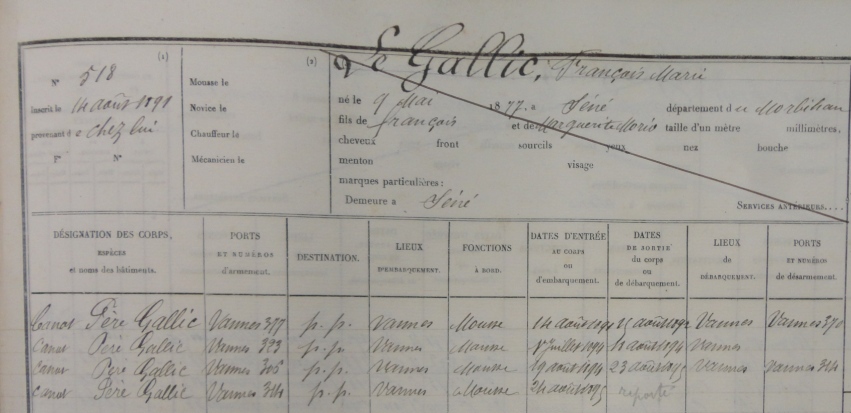 (1)
(2)
Le Gallic, François Marie
N° 518
inscrit le 14 août 1891
provenant de chez lui
F° N°
Mousse le
Novice le
Chauffeur le
Mécanicien le
né le 9 Mai 1877. a Séné département du Morbihan
fils de François et de Marguerite Morio taille d'un mètre millimètres,
cheveux front sourcils yeux nez bouche
menton visage
marques particulières :
Demeure a Séné
SERVICES ANTÉRIEURS....
DÉSIGNATION DES CORPS, ESPÈCES et noms des bâtiments.
PORTS ET NUMÉROS d'armement.
DESTINATION.
LIEUX D'EMBARQUEMENT.
FONCTIONS À BORD.
DATES D'ENTRÉE AU CORPS ou d'embarquement.
DATES DE SORTIE du corps ou de débarquement.
LIEUX de DÉBARQUEMENT.
PORTS ET NUMÉROS de désarmement.
Canot Père Gallic Vannes 377 p.p. Vannes Mousse 14 août août Vannes Vannes 370
Canot Père Gallic Vannes 393 p.p. Vannes Mousse Juillet 1894 août 1894 Vannes
Canot Père Gallic Vannes p.p. Vannes Mousse 19 août 1894 23 août Vannes Vannes 314
Canot Père Gallic Vannes 314 p.p. Vannes Mousse 24 août reporté